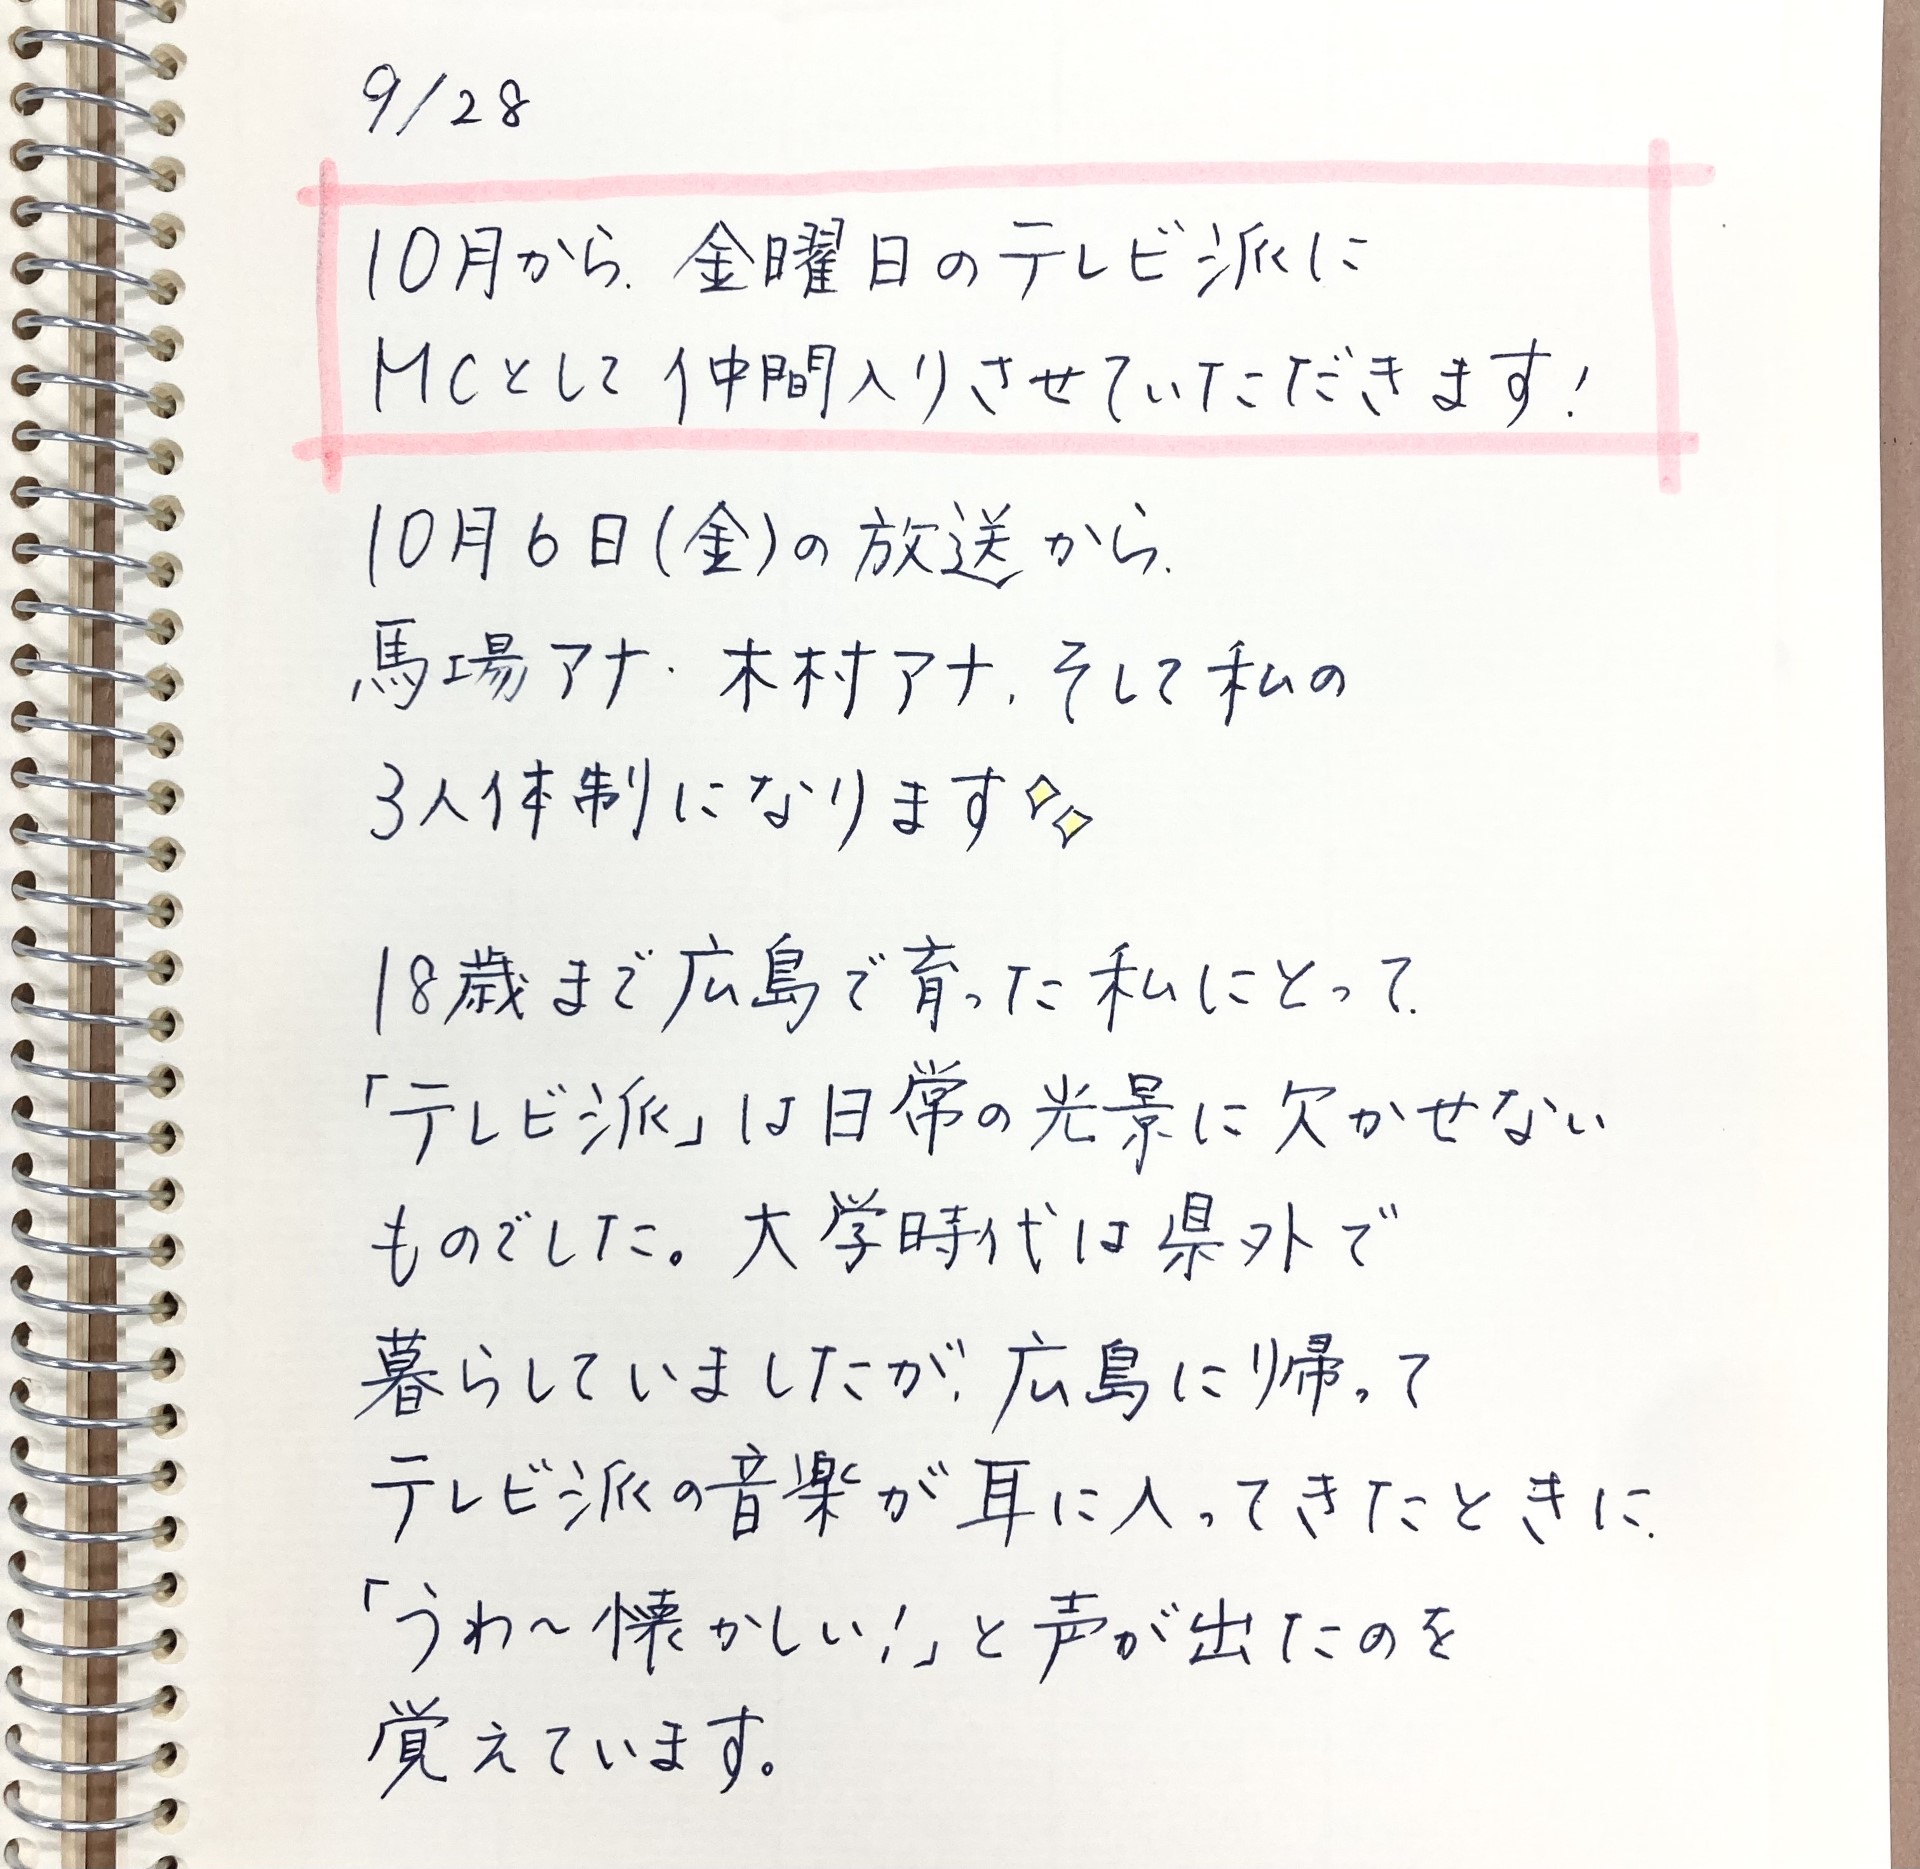 9/28
10月から、金曜日のテレビ派に
MCとして仲間入りさせていただきます！
10月6日(金)の放送から、
馬場アナ・木村アナ、そして私の
3人体制になります
18歳まで広島で育った私にとって、
「テレビ派」は日常の光景に欠かせない
ものでした。大学時代は県外で
暮らしていましたが、広島に帰って
テレビ派の音楽が耳に入ってきたときに、
「うわ〜懐かしい！」と声が出たのを
覚えています。